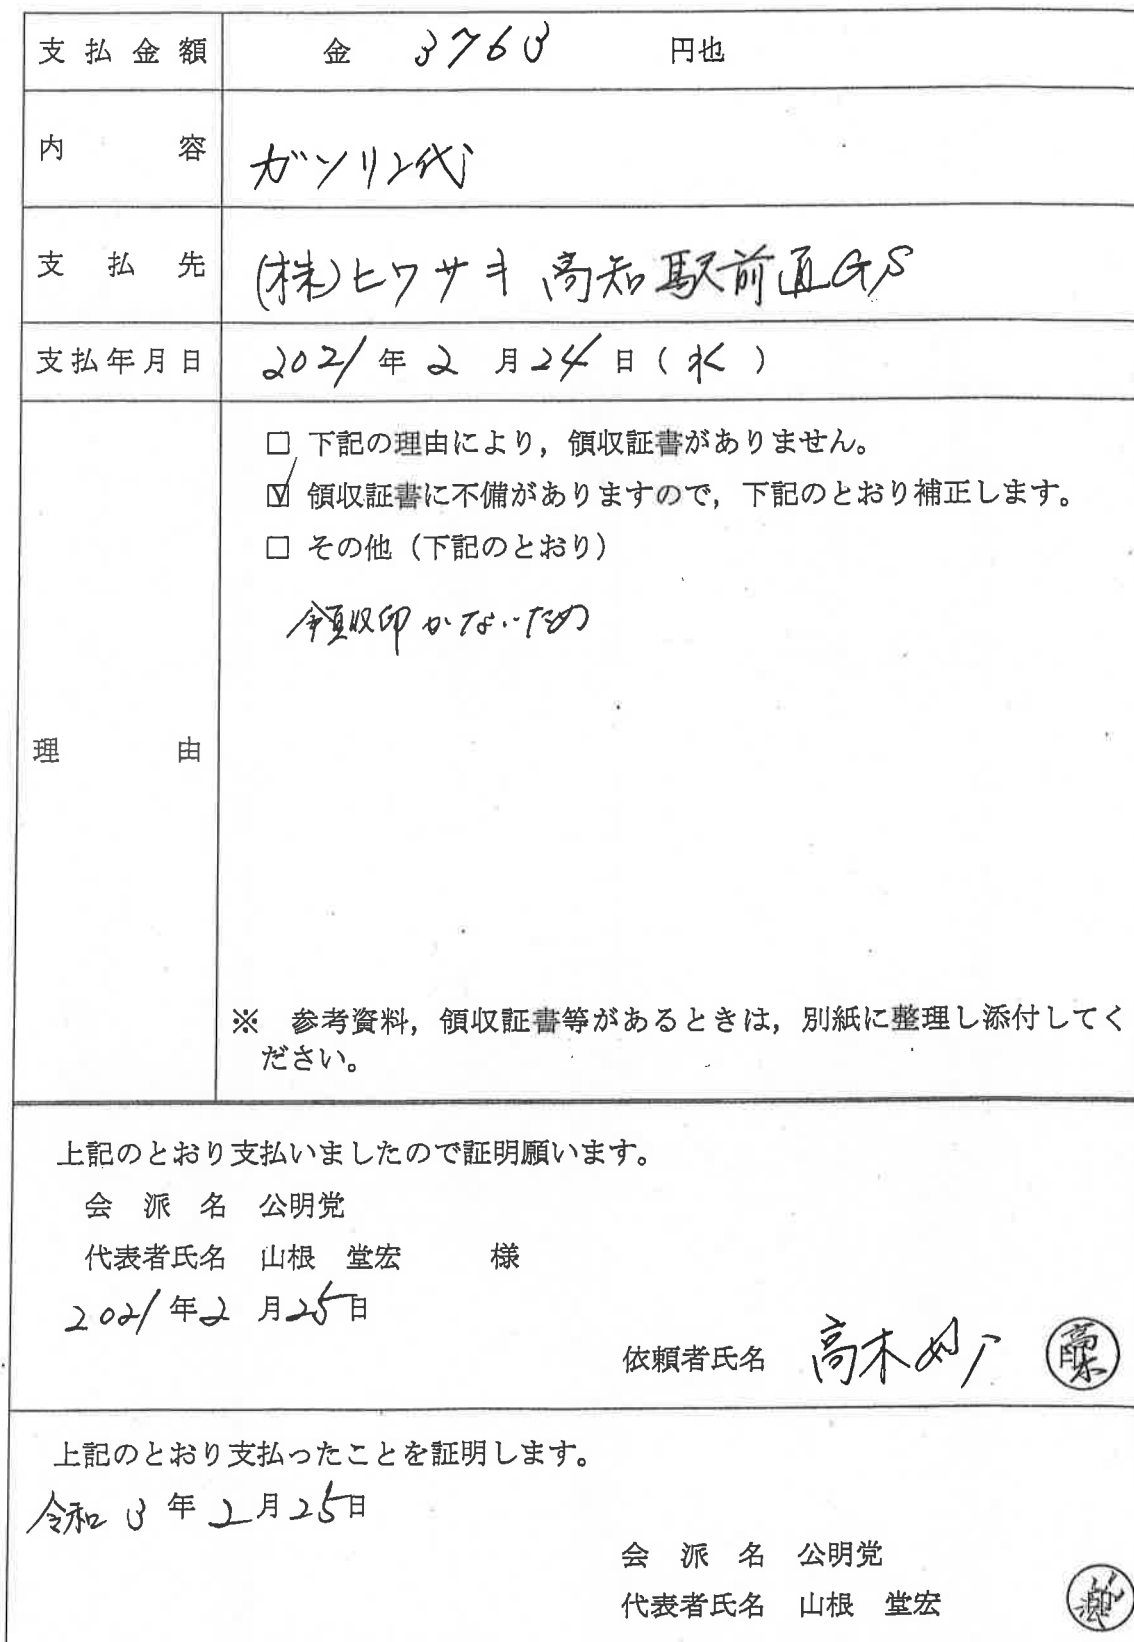 支払金額 金 3763 円也
内容 ガソリン代
支払先 (株)ヒワサキ 高知駅前通GS
支払年月日 2021年2月24日(水)
□ 下記の理由により，領収証書がありません。
☑ 領収証書に不備がありますので，下記のとおり補正します。
□ その他（下記のとおり）
領収印がないため
理由
※ 参考資料，領収証書等があるときは，別紙に整理し添付してく
ださい。
上記のとおり支払いましたので証明願います。
会派名 公明党
代表者氏名 山根 堂宏 様
2021年2月25日
依頼者氏名 高木妙 高木印
上記のとおり支払ったことを証明します。
令和3年2月25日
会派名 公明党
代表者氏名 山根 堂宏